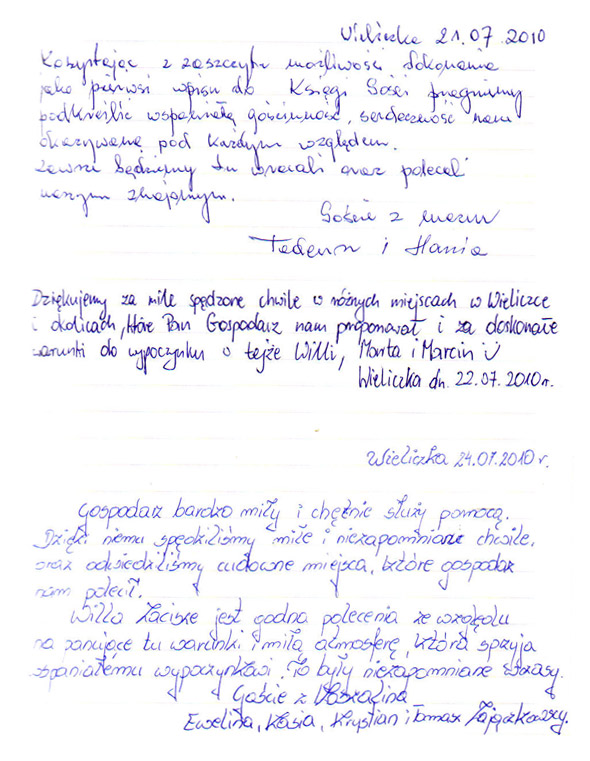 Wieliczka 21.07.2010
Korzystając z zaszczytu możliwości dokonania
jako pierwsi wpisu do Księgi Gości pragniemy
podkreślić wspaniałą gościnność, serdeczność nam
okazywaną pod każdym względem.
Zawsze będziemy tu wracali oraz polecali
naszym znajomym.
Goście z
Tadeusz i Hania
Dziękujemy za miłe spędzone chwile w różnych miejscach w Wieliczce
i okolicach, które Pan Gospodarz nam proponował i za doskonałe
warunki do wypoczynku w tejże Willi, Marta i Marcin
Wieliczka dn. 22.07.2010r.
Wieliczka 24.07.2010 r.
Gospodarz bardzo miły i chętnie służy pomocą.
Dzięki niemu spędziliśmy miłe i niezapomniane chwile,
oraz odwiedziliśmy cudowne miejsca, które gospodarz
nam polecił.
Willa Zacisze jest godna polecenia ze względu
na panujące tu warunki i miłą atmosferę, która sprzyja
wspaniałemu wypoczynkowi. To były niezapomniane wczasy.
Goście z Koszalina
Ewelina, Kasia, Krystian i Tomasz Zajączkowscy.